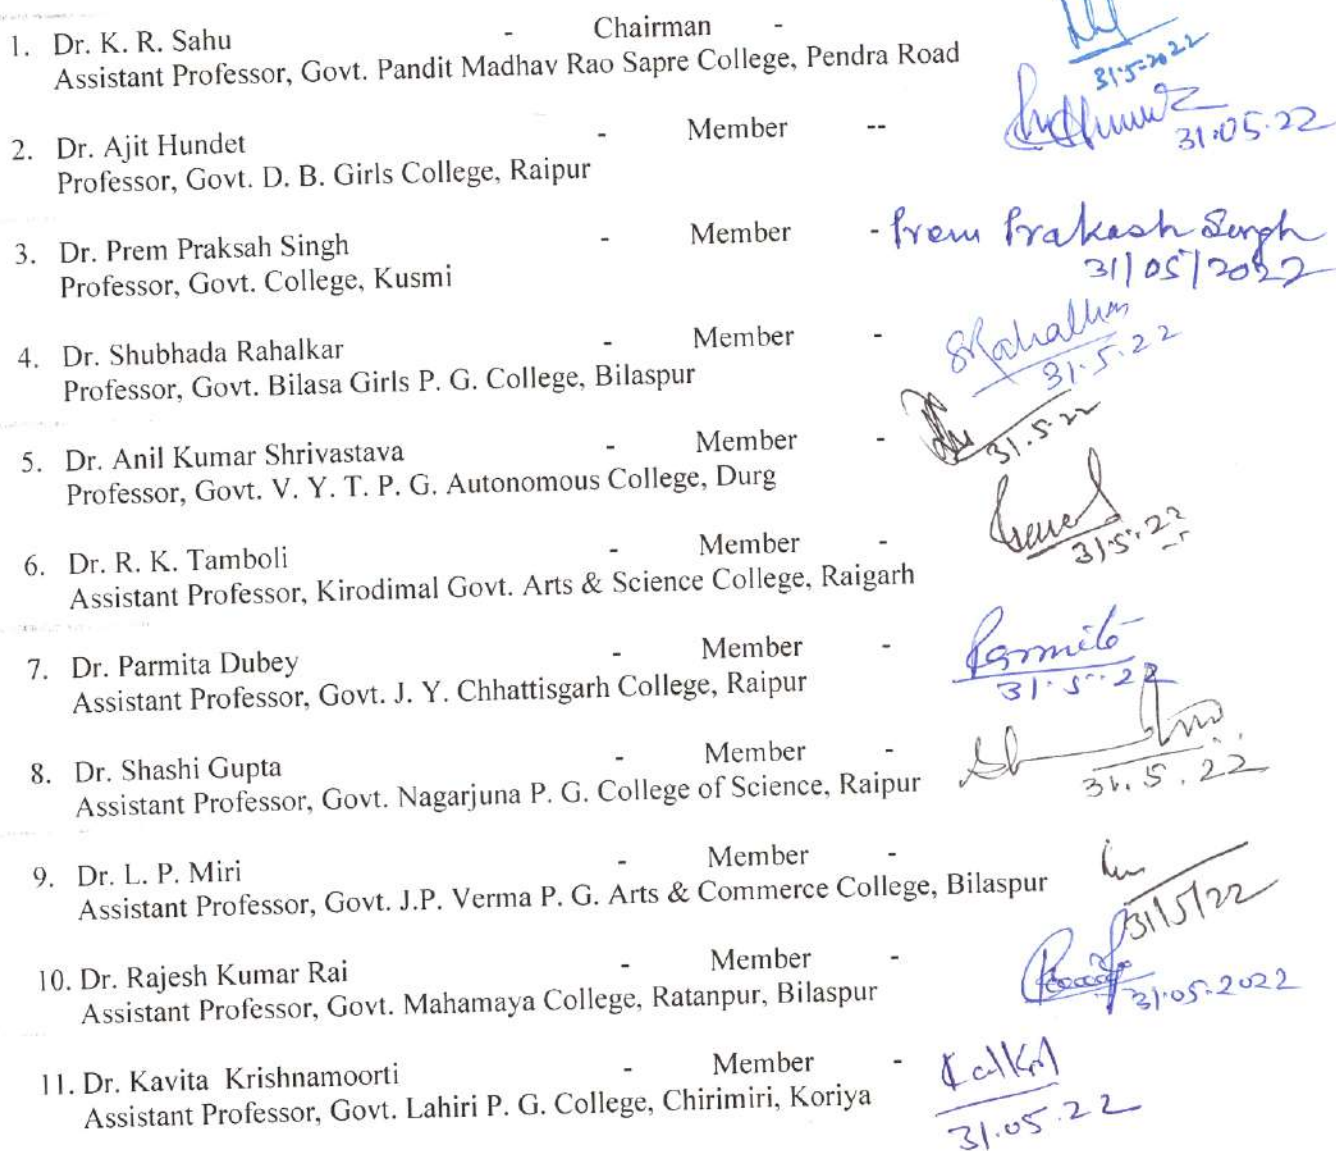 1. Dr. K. R. Sahu - Chairman -
31.5.2022
Assistant Professor, Govt. Pandit Madhav Rao Sapre College, Pendra Road
2. Dr. Ajit Hundet - Member --
31.05.22
Professor, Govt. D. B. Girls College, Raipur
3. Dr. Prem Praksah Singh - Member - Prem Prakash Singh
31/05/2022
Professor, Govt. College, Kusmi
4. Dr. Shubhada Rahalkar - Member - SRahalkar
31.5.22
Professor, Govt. Bilasa Girls P. G. College, Bilaspur
5. Dr. Anil Kumar Shrivastava - Member -
31.5.22
Professor, Govt. V. Y. T. P. G. Autonomous College, Durg
6. Dr. R. K. Tamboli - Member -
31.5.22
Assistant Professor, Kirodimal Govt. Arts & Science College, Raigarh
7. Dr. Parmita Dubey - Member - Parmita
31.5.22
Assistant Professor, Govt. J. Y. Chhattisgarh College, Raipur
8. Dr. Shashi Gupta - Member -
31.5.22
Assistant Professor, Govt. Nagarjuna P. G. College of Science, Raipur
9. Dr. L. P. Miri - Member -
31/5/22
Assistant Professor, Govt. J.P. Verma P. G. Arts & Commerce College, Bilaspur
10. Dr. Rajesh Kumar Rai - Member -
31.05.2022
Assistant Professor, Govt. Mahamaya College, Ratanpur, Bilaspur
11. Dr. Kavita Krishnamoorti - Member -
31.05.22
Assistant Professor, Govt. Lahiri P. G. College, Chirimiri, Koriya